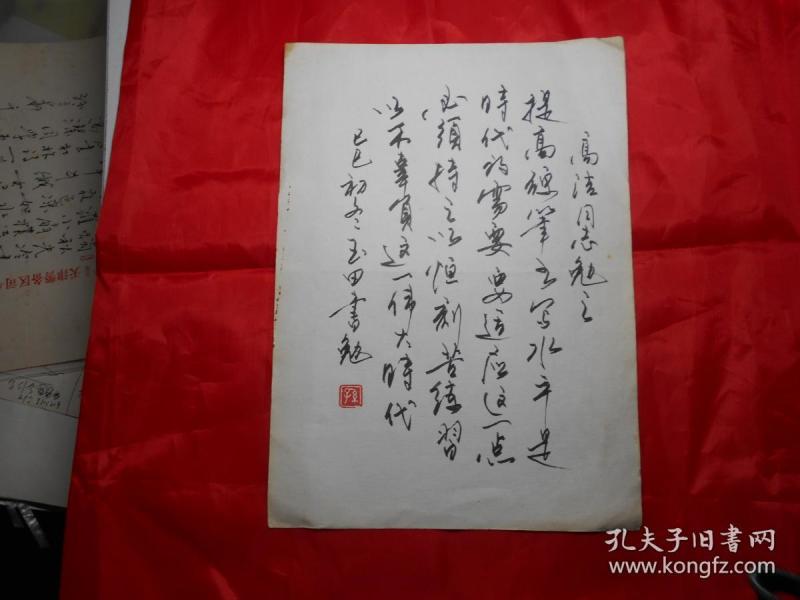 高洁同志勉之
提高硬笔书写水平是
時代的需要 要适应这一点
必须持之以恒刻苦练習
以不辜負这一伟大時代
己巳初冬玉田書勉
天津警备区司
孔夫子旧书网
www.kongfz.com